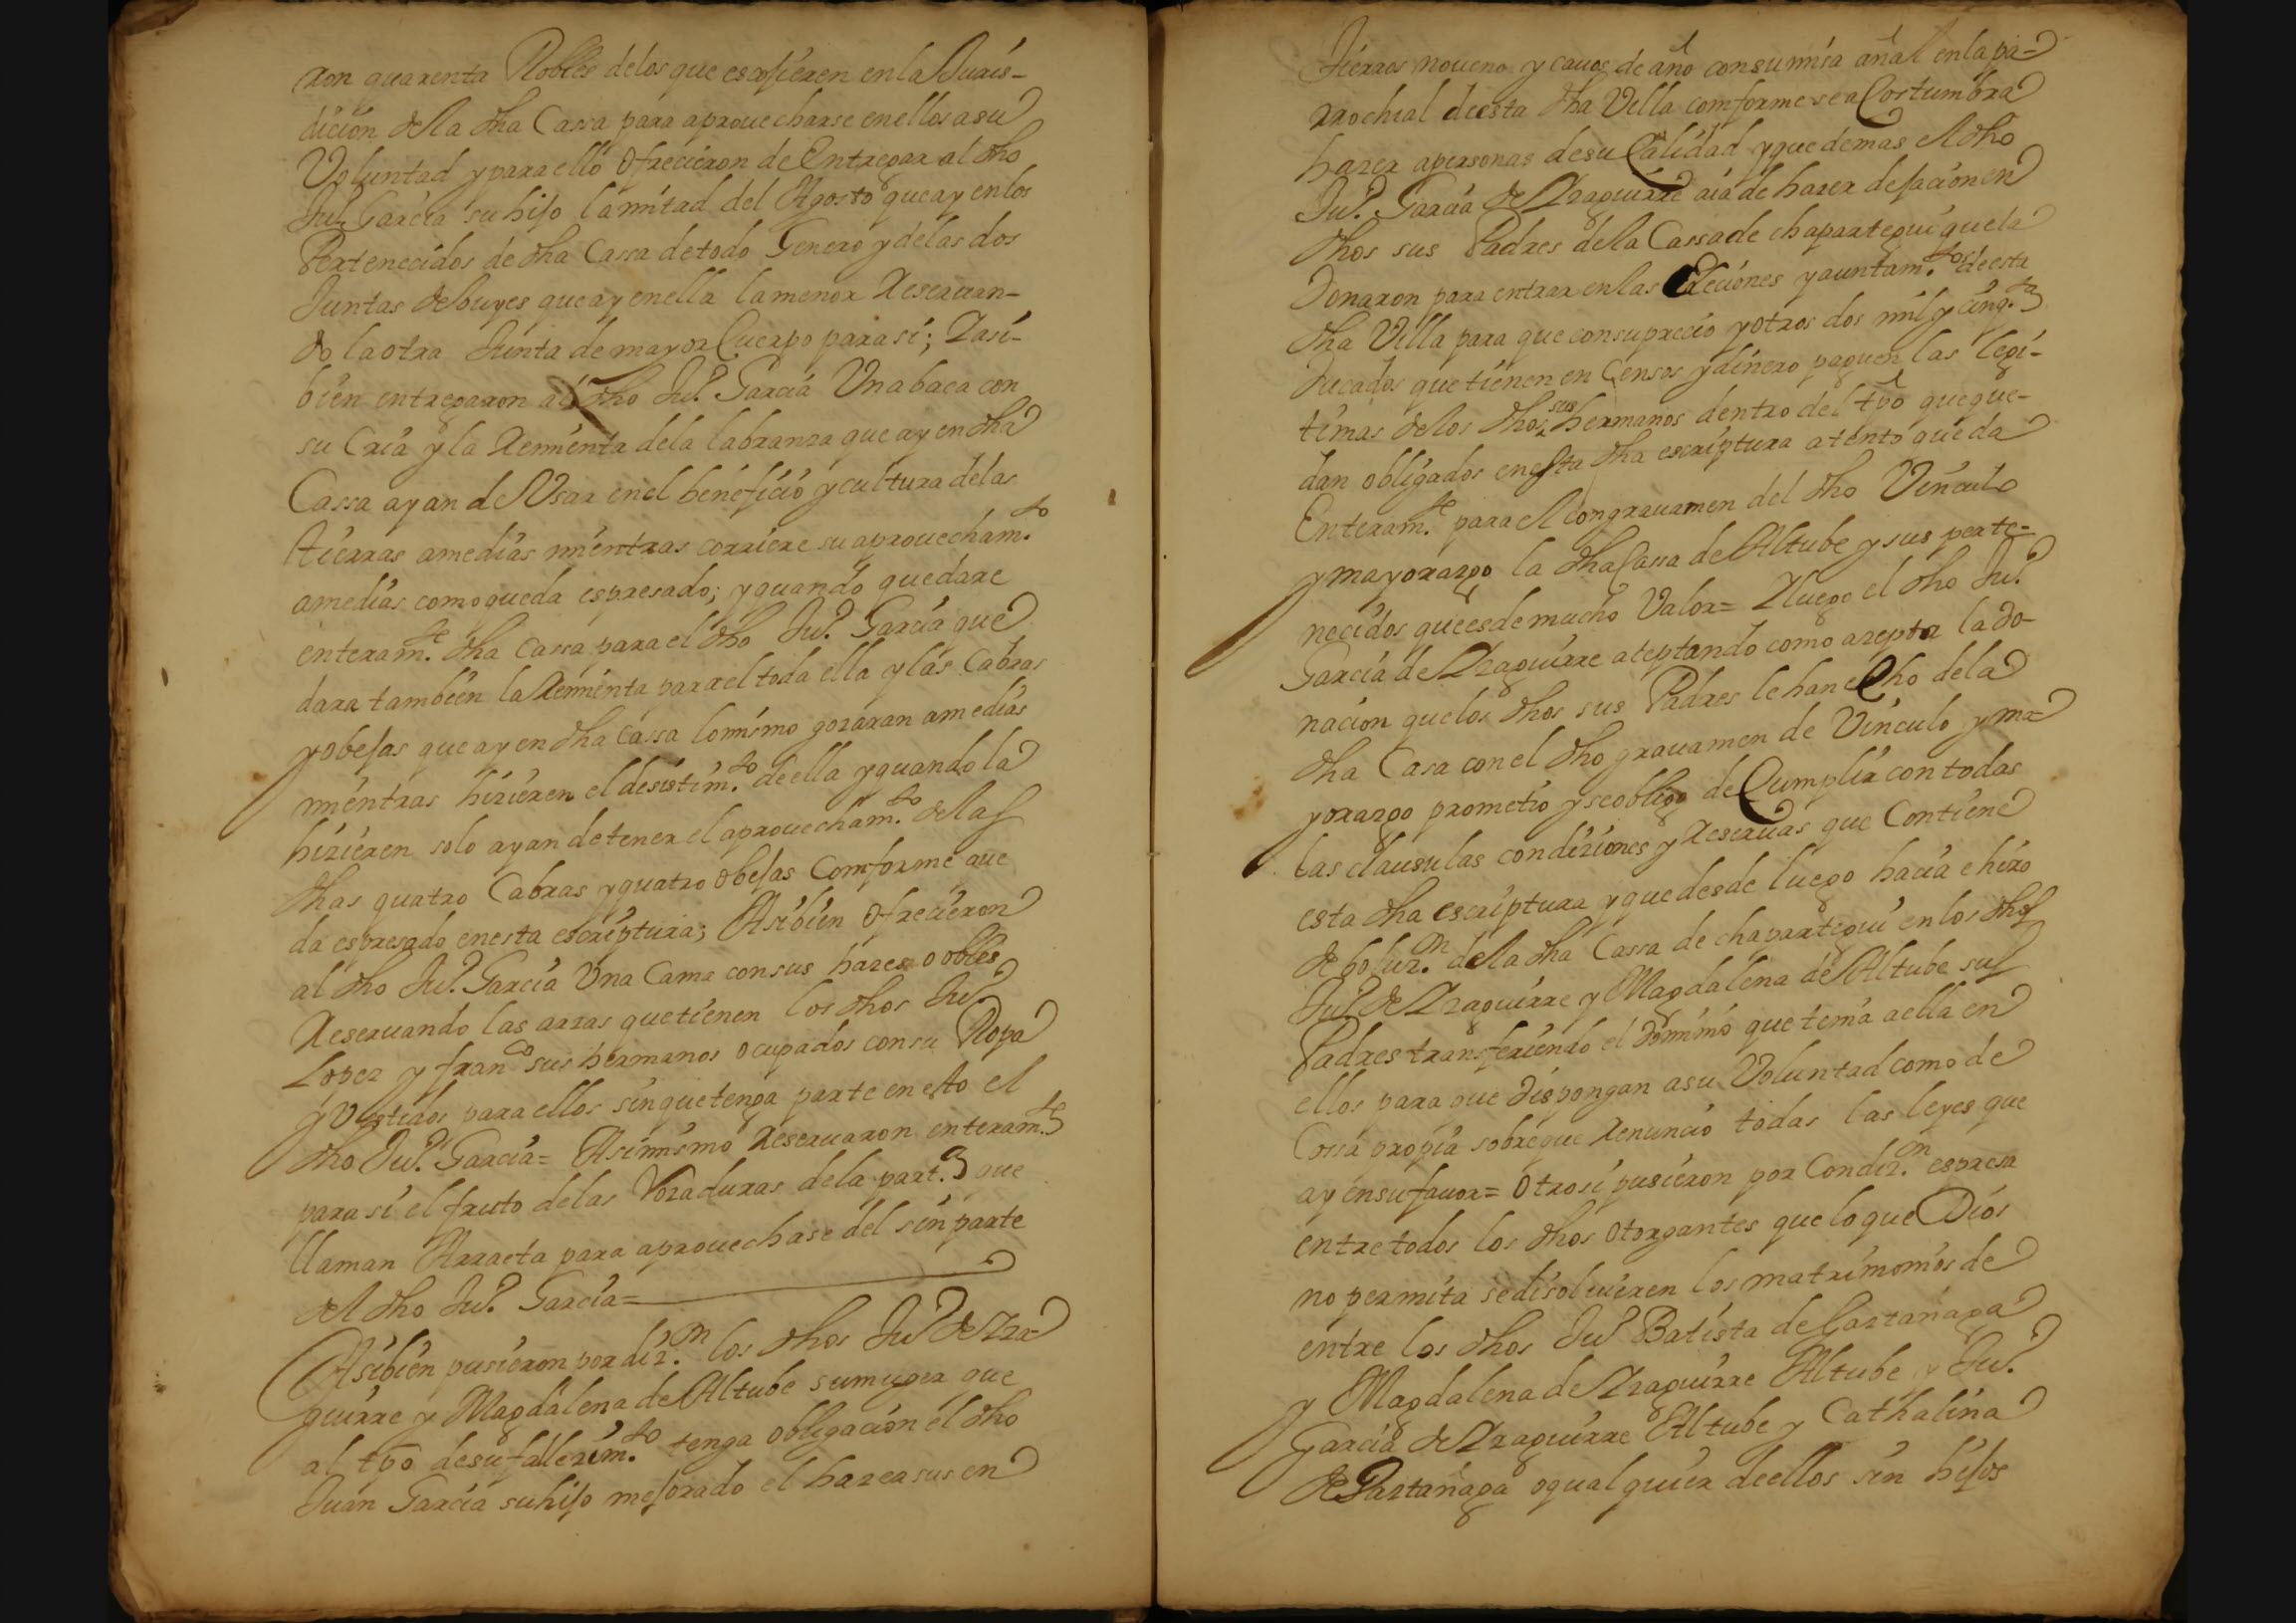 ron quarenta Robles delos que escojieren en la Juris-
dicion de la dha Cassa para aprouecharse en ellos a su
Voluntad y para ello ofrecieron de Entregar al dho
Ju.º Garcia su hijo la mitad del Agosto que ay en los
Pertenecidos de dha Cassa de todo Genero y de las dos
Juntas de buyes que ay en ella la menor Reseruan-
do la otra Junta de mayor Cuerpo para si; Iasi-
bien entregaron al dho Ju.º Garcia Una baca con
su Cria y la Remienta de la labranza que ay en dha
Cassa ayan de Usar en el beneficio y cultura de las
tierras a medias mientras corriere su aprouecham.to
a medias como queda espresado; y quando quedare
enteram.te dha Cassa para el dho Ju.º Garcia que
dara tambien la Remienta para el toda ella y las Cabras
y obejas que ay en dha Cassa lo mismo gozaran a medias
mientras hizieren el desistim.to de ella y quando la
hizieren solo ayan de tener el aprouecham.to de las
dhas quatro Cabras y quatro obejas Comforme que
da espresado en esta escriptura; Asibien Ofrecieron
al dho Ju.º Garcia Una Cama con sus hazes dobles
Reseruando las arcas que tienen los dhos Ju.º
Lopez y fran.co sus hermanos ocupados con su Ropa
y Vestidos para ellos sin que tenga parte en esto el
dho Ju.º Garcia= Asimismo Reseruaron enteram.te
para si el fruto de las del a part.da que
llaman Arraeta para aprouechase del sin parte
del dho Ju.º Garcia=
Asibien pusieron por diz.on los dhos Ju.º de Iza-
guirre y Magdalena de Altube su muger que
al tpo de su fallezim.to tenga obligacion el dho
Juan Garcia su hijo mejorado el hazer a sus en
tierros noueno y cauos de año consumisa añal en la pa-
rrochial de esta dha Villa comforme se a Costumbra
hazer a personas de su Calidad y que demas el dho
Ju.º Garcia de Izaguirre aia de hazer dejacion en
dhos sus Padres de la Cassa de chapartegui que la
Donaron para entrar en las elecciones y auntam.tos de esta
dha Villa para que con su precio y otros dos mil y cinq.ta
Ducados que tienen en Censos y dinero paguen las legi-
timas de los dhos sus hermanos dentro del tpo que que-
dan obligados en esta dha escriptura atento queda
Enteram.te para el con grauamen del dho Vinculo
y mayorazgo la dha Cassa de Altube y sus perte-
necidos que es de mucho Valor= I luego el dho Ju.º
Garcia de Izaguirre aceptando como azepta la do-
nacion que los dhos sus Padres le han echo de la
dha Casa con el dho grauamen de Vinculo y ma-
yorazgo prometio y se obligo de Cumplir con todas
las clausulas condiziones y Reseruas que Contiene
esta dha escriptura y que desde luego hacia e hizo
deboluz.on de la dha Cassa de chapartegui en los dhos
Ju.º de Izaguirre y Magdalena de Altube sus
Padres transfiriendo el Dominio que tenia a ella en
ellos para que dispongan a su Voluntad como de
Cossa propia sobre que Renuncio todas las leyes que
ay en su fauor= Otrosi pusieron por Condiz.on espresa
entre todos los dhos Otorgantes que lo que Dios
no permita se disoluieren los matrimonios de
entre los dhos Ju.º Batista de Gaztañaga
y Magdalena de Izaguirre Altube y Ju.º
Garcia de Izaguirre Altube y Cathalina
de Gaztañaga o qualquier de ellos sin hijos